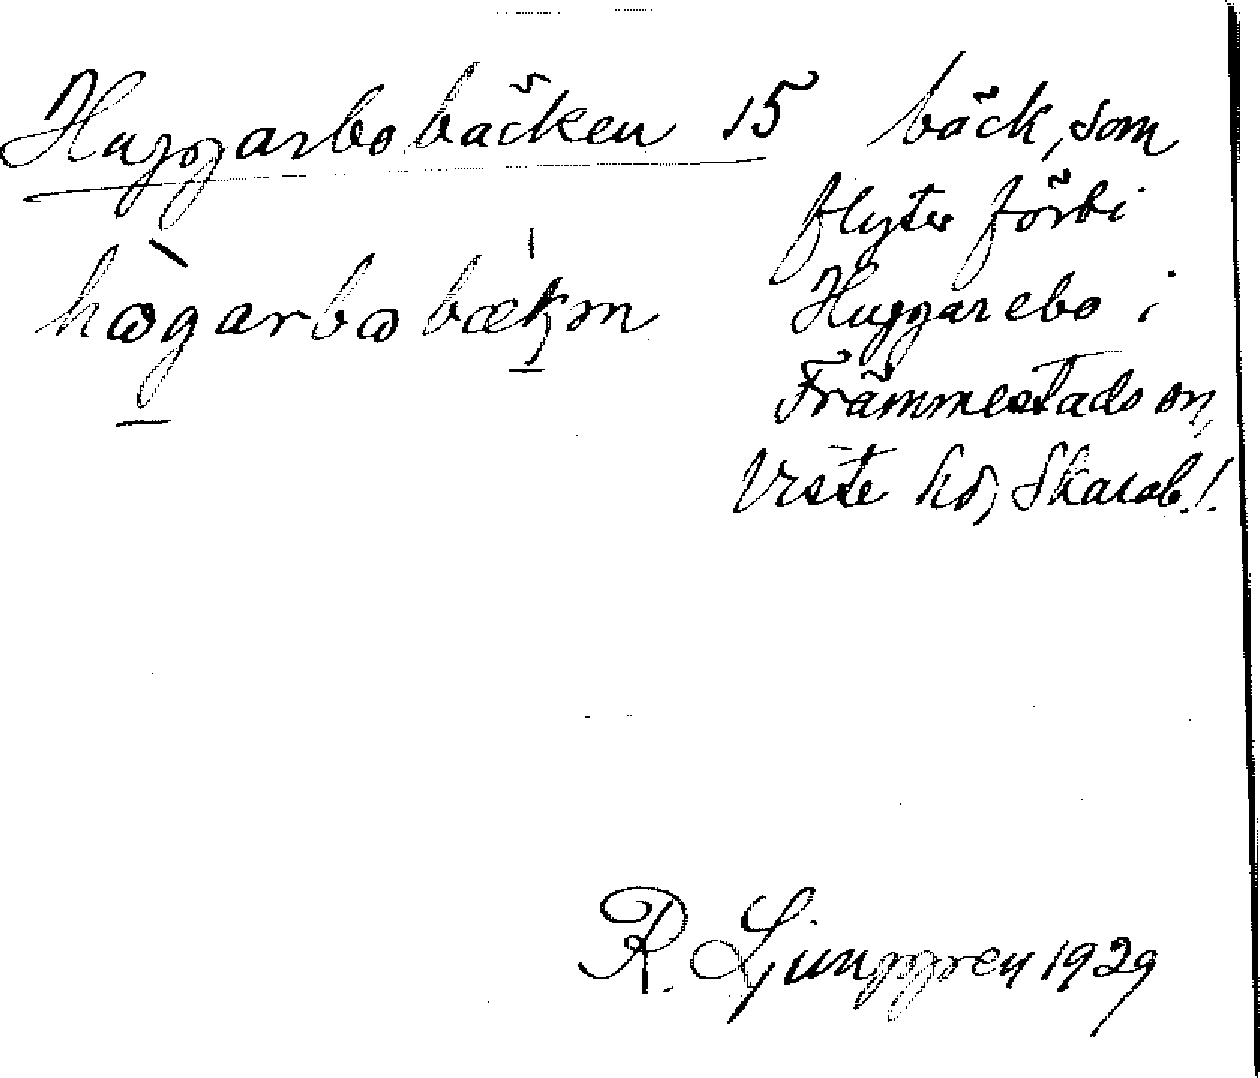 Huggarbobäcken 15
bäck, som
flyter förbi
Huggarebo i
Främmestads sn,
Viste hd, Skarab.l.
hωgarbωbækm
R. Ljunggren 1929